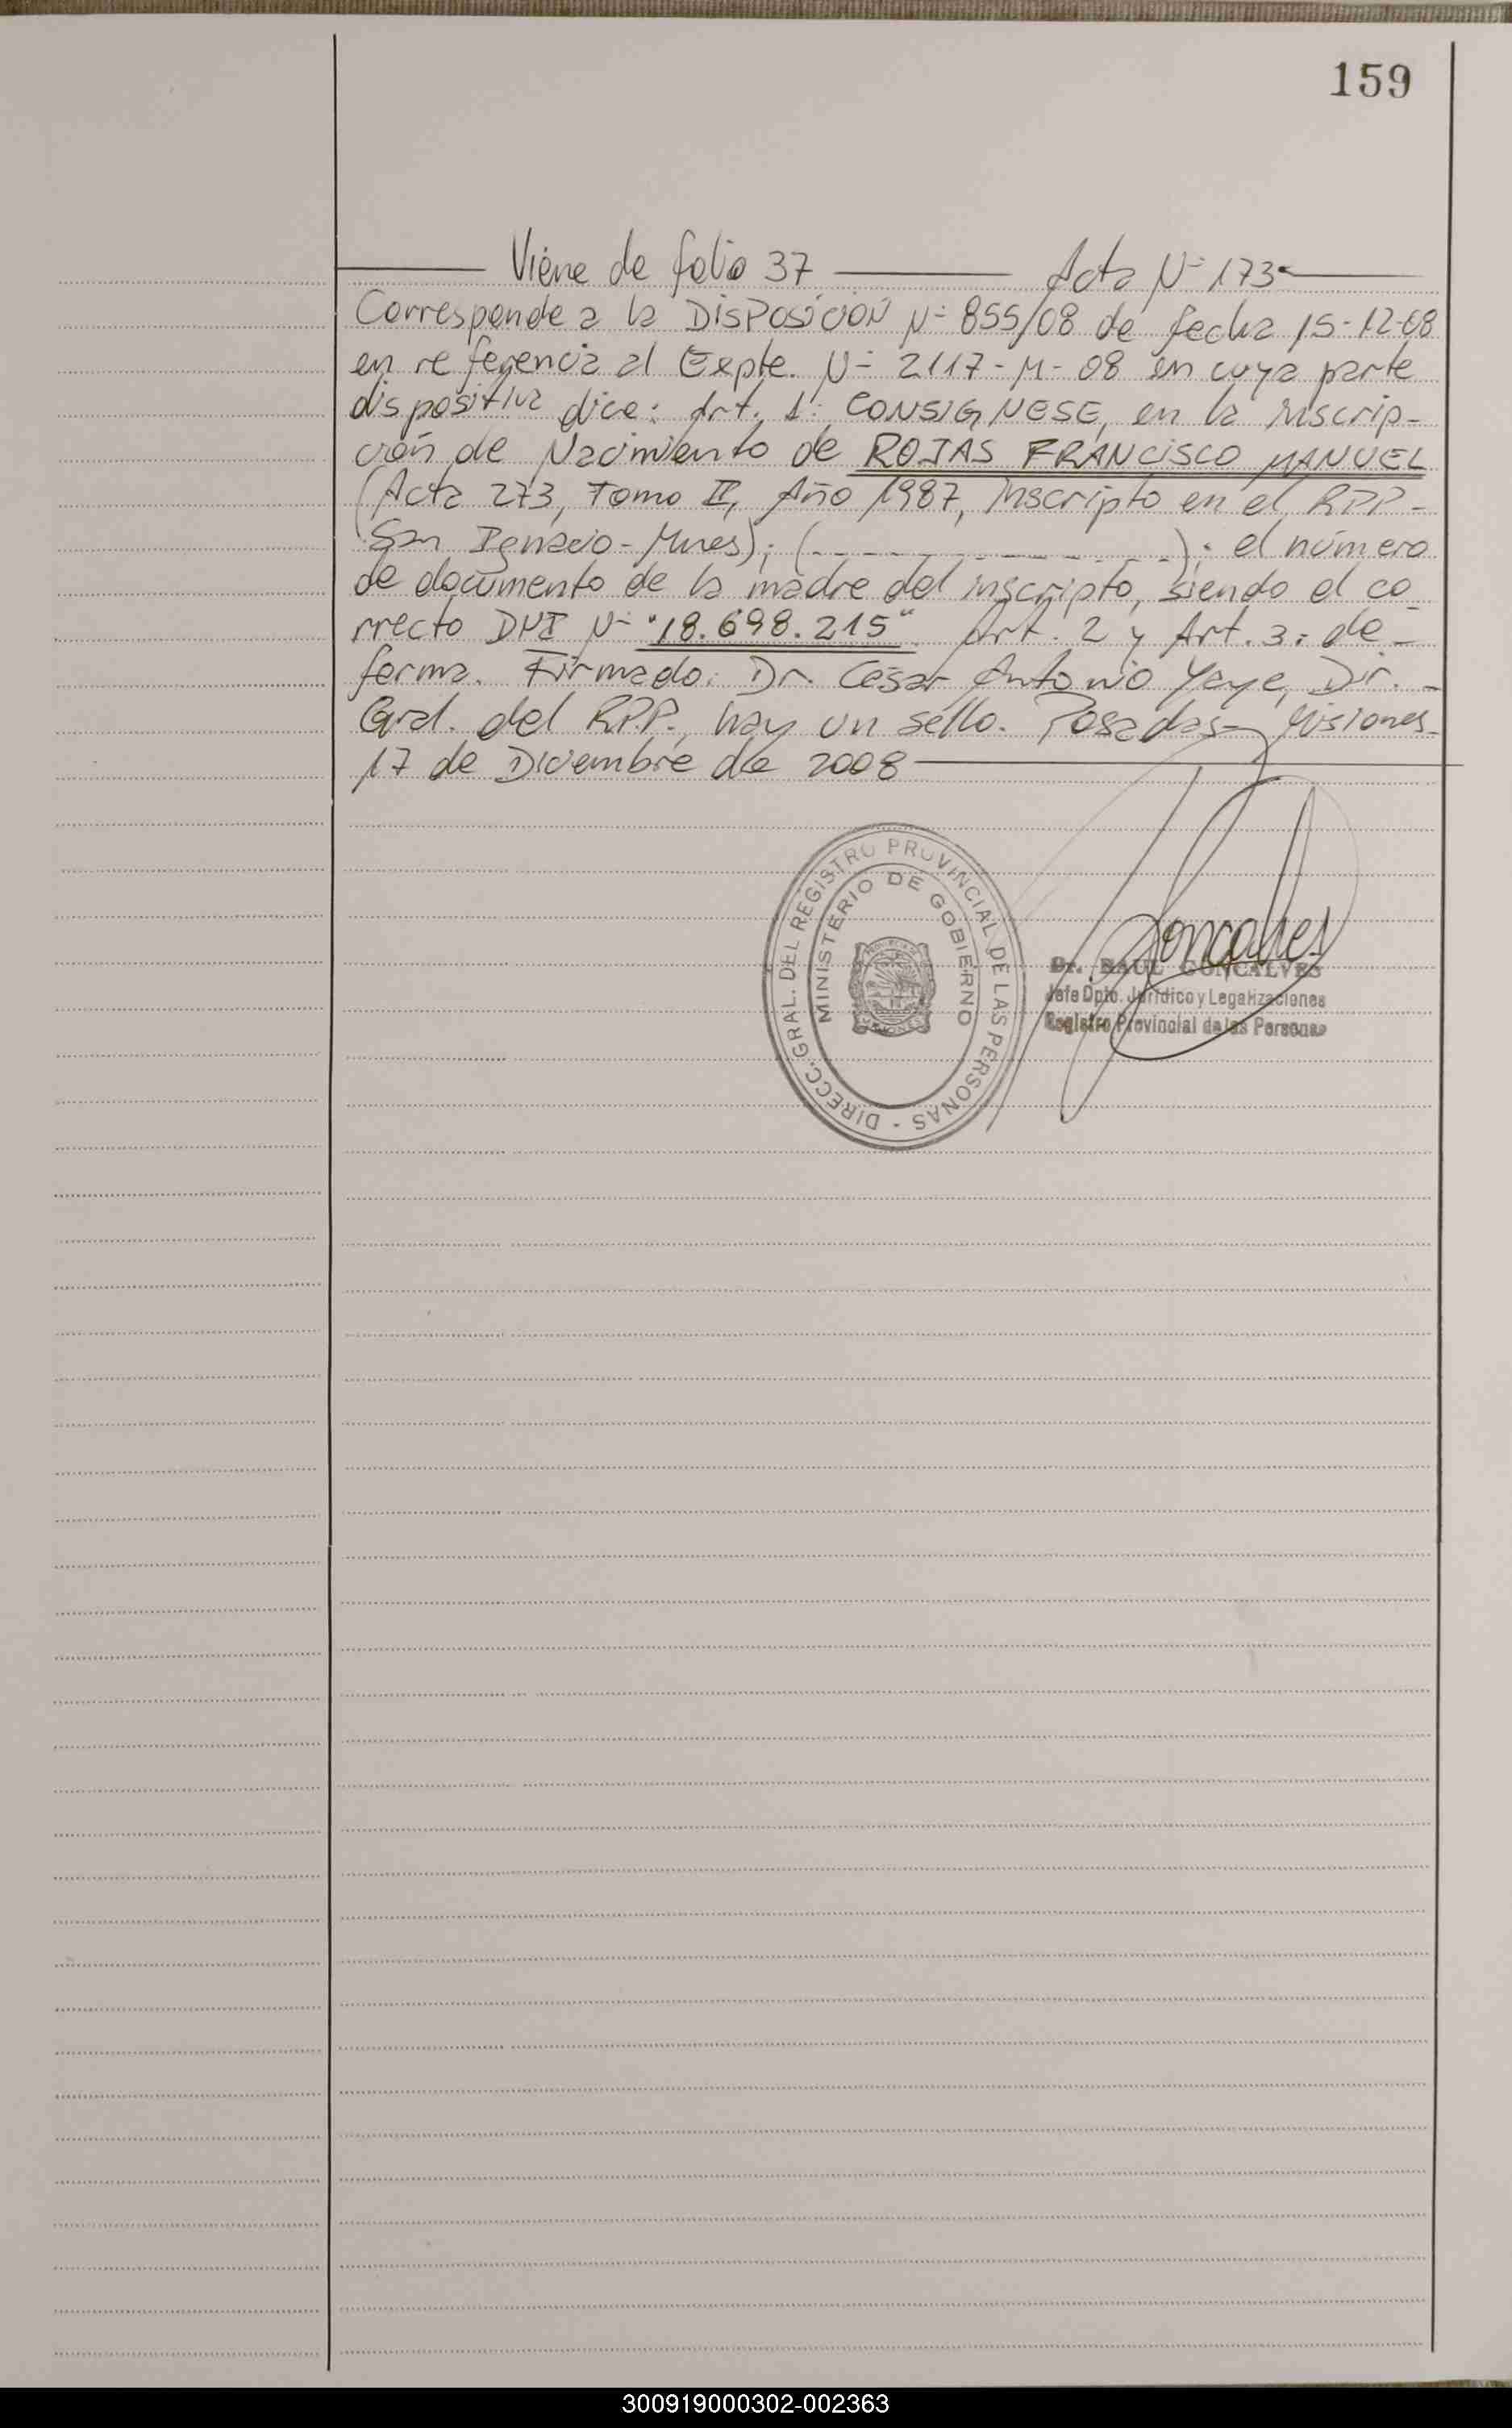 159
Viene de folio 37 Acta Nº 173
Corresponde a la DISPOSICION Nº 855/08 de fecha 15-12-08
en referencia al Expte. Nº 2117-M-08 en cuya parte
dispositiva dice: Art. 1º: CONSIGNESE, en la inscrip-
ción de Nacimiento de ROJAS FRANCISCO MANUEL
(Acta 273, Tomo II, Año 1987, inscripto en el RPP-
San Ignacio-Mnes); (_ _ _ _ _ _ _ _ _ _); el número
de documento de la madre del inscripto, siendo el co-
rrecto DNI Nº "18.698.215". Art. 2 y Art. 3: de-
forma. Firmado: Dr. César Antonio Yaye, Dir. -
Gral. del R.P.P., hay un sello. Posadas, Misiones
17 de Diciembre de 2008
DIRECC. GRAL. DEL REGISTRO PROVINCIAL DE LAS PERSONAS -
MINISTERIO DE GOBIERNO
Goncalves
Dr. RAUL GONCALVES
Jefe Dpto. Jurídico y Legalizaciones
Registro Provincial de las Personas
300919000302-002363